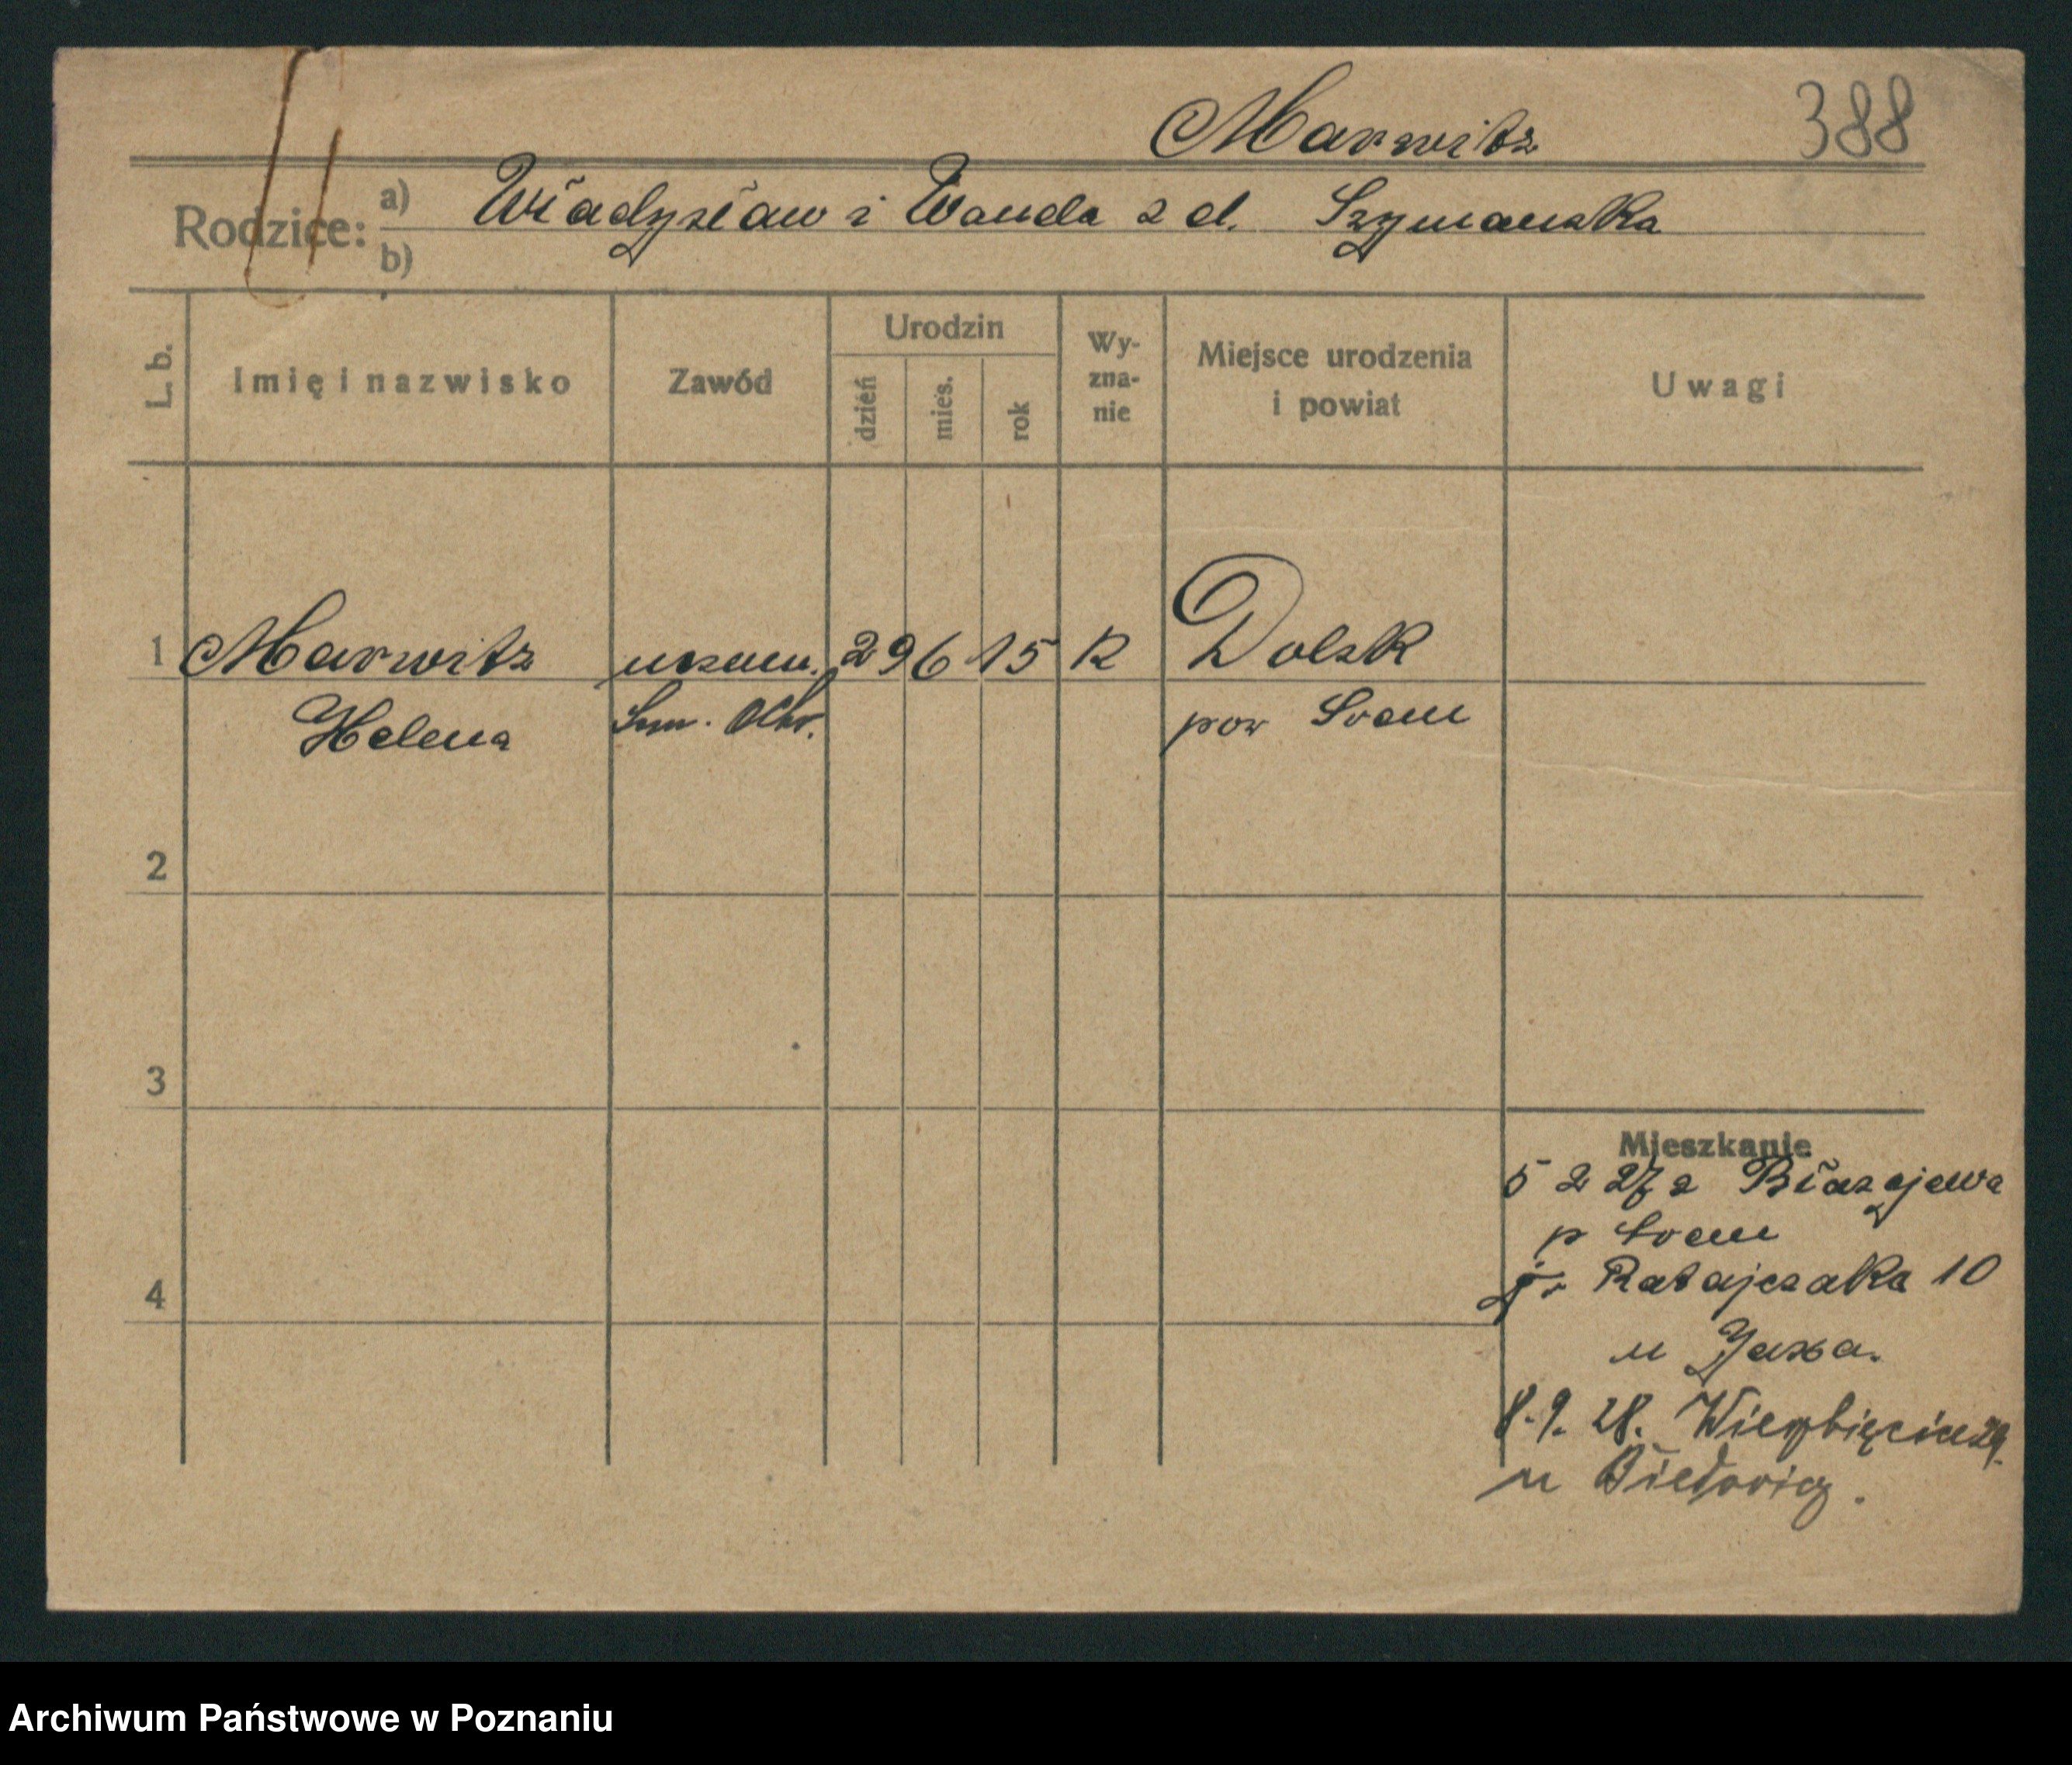 Marwitz 388
Rodzice: a) Władysław i Wanda z d. Szymańska
b)
L. b. Imię i nazwisko Zawód Urodzin dzień mies. rok Wy-zna-nie Miejsce urodzenia i powiat Uwagi
1 Marwitz uczen. 29 6 15 R Dolsk
Helena Sem. Ochr. pow Srem
2
3
Mieszkanie
5 2 27 z Błażejewa
p Srem
4 Ratajczaka 10
u Jaxa.
8.9. 28. Wierzbięcice
u
Archiwum Państwowe w Poznaniu